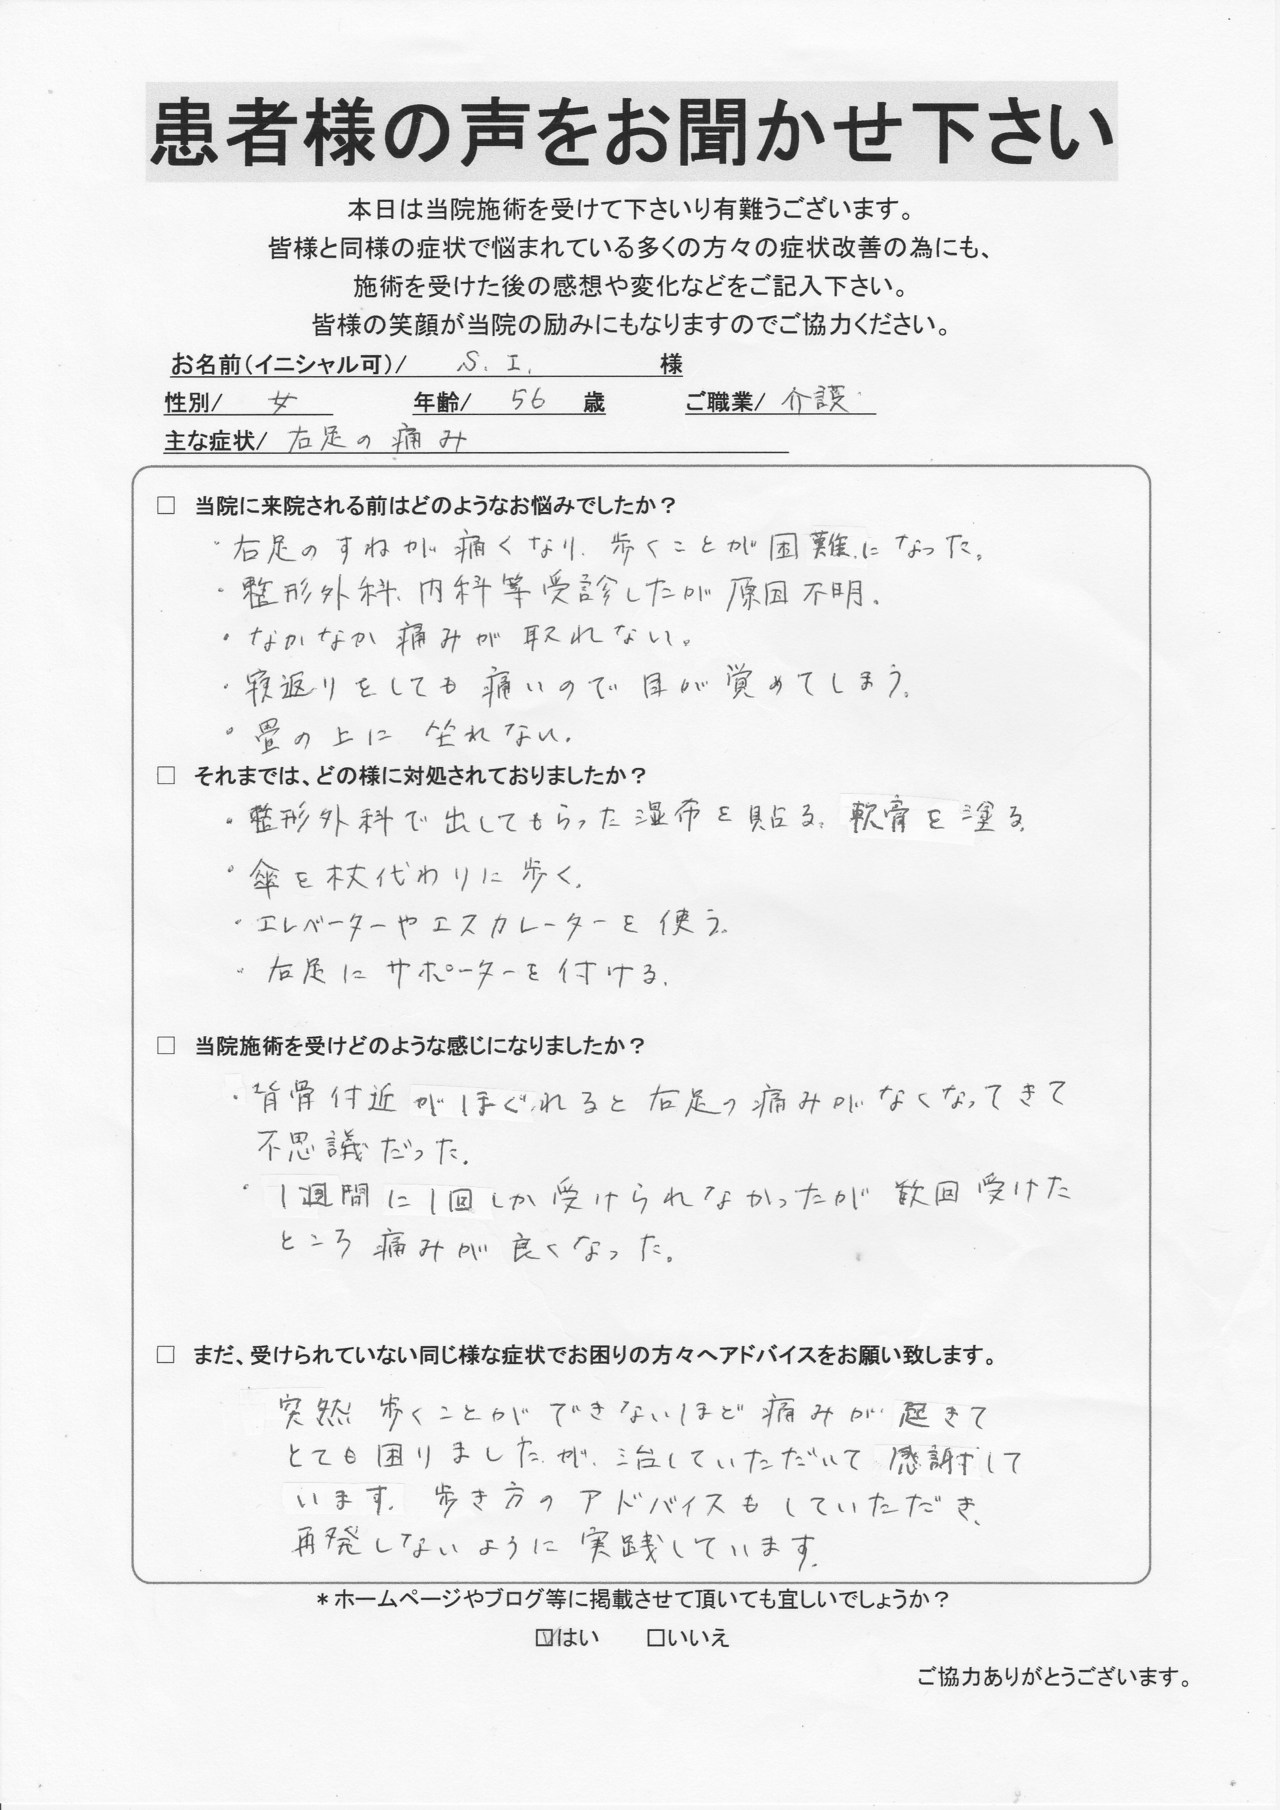 患者様の声をお聞かせ下さい
本日は当院施術を受けて下さいり有難うございます。
皆様と同様の症状で悩まれている多くの方々の症状改善の為にも、
施術を受けた後の感想や変化などをご記入下さい。
皆様の笑顔が当院の励みにもなりますのでご協力ください。
お名前(イニシャル可)/ S. I. 様
性別/ 女 年齢/ 56 歳 ご職業/ 介護
主な症状/ 右足の痛み
□ 当院に来院される前はどのようなお悩みでしたか?
・右足のすねが痛くなり、歩くことが困難になった。
・整形外科、内科等受診したが原因不明。
・なかなか痛みが取れない。
・寝返りをしても痛いので目が覚めてしまう。
・畳の上に坐れない。
□ それまでは、どの様に対処されておりましたか?
・整形外科で出してもらった湿布を貼る。軟膏を塗る。
・傘を杖代わりに歩く。
・エレベーターやエスカレーターを使う。
・右足にサポーターを付ける。
□ 当院施術を受けどのような感じになりましたか?
・背骨付近がほぐれると右足の痛みがなくなってきて
不思議だった。
・1週間に1回しか受けられなかったが数回受けた
ところ痛みが良くなった。
□ まだ、受けられていない同じ様な症状でお困りの方々へアドバイスをお願い致します。
突然歩くことができないほど痛みが起きて
とても困りましたが、治していただいて感謝して
います。歩き方のアドバイスもしていただき、
再発しないように実践しています。
*ホームページやブログ等に掲載させて頂いても宜しいでしょうか?
☑はい □いいえ
ご協力ありがとうございます。